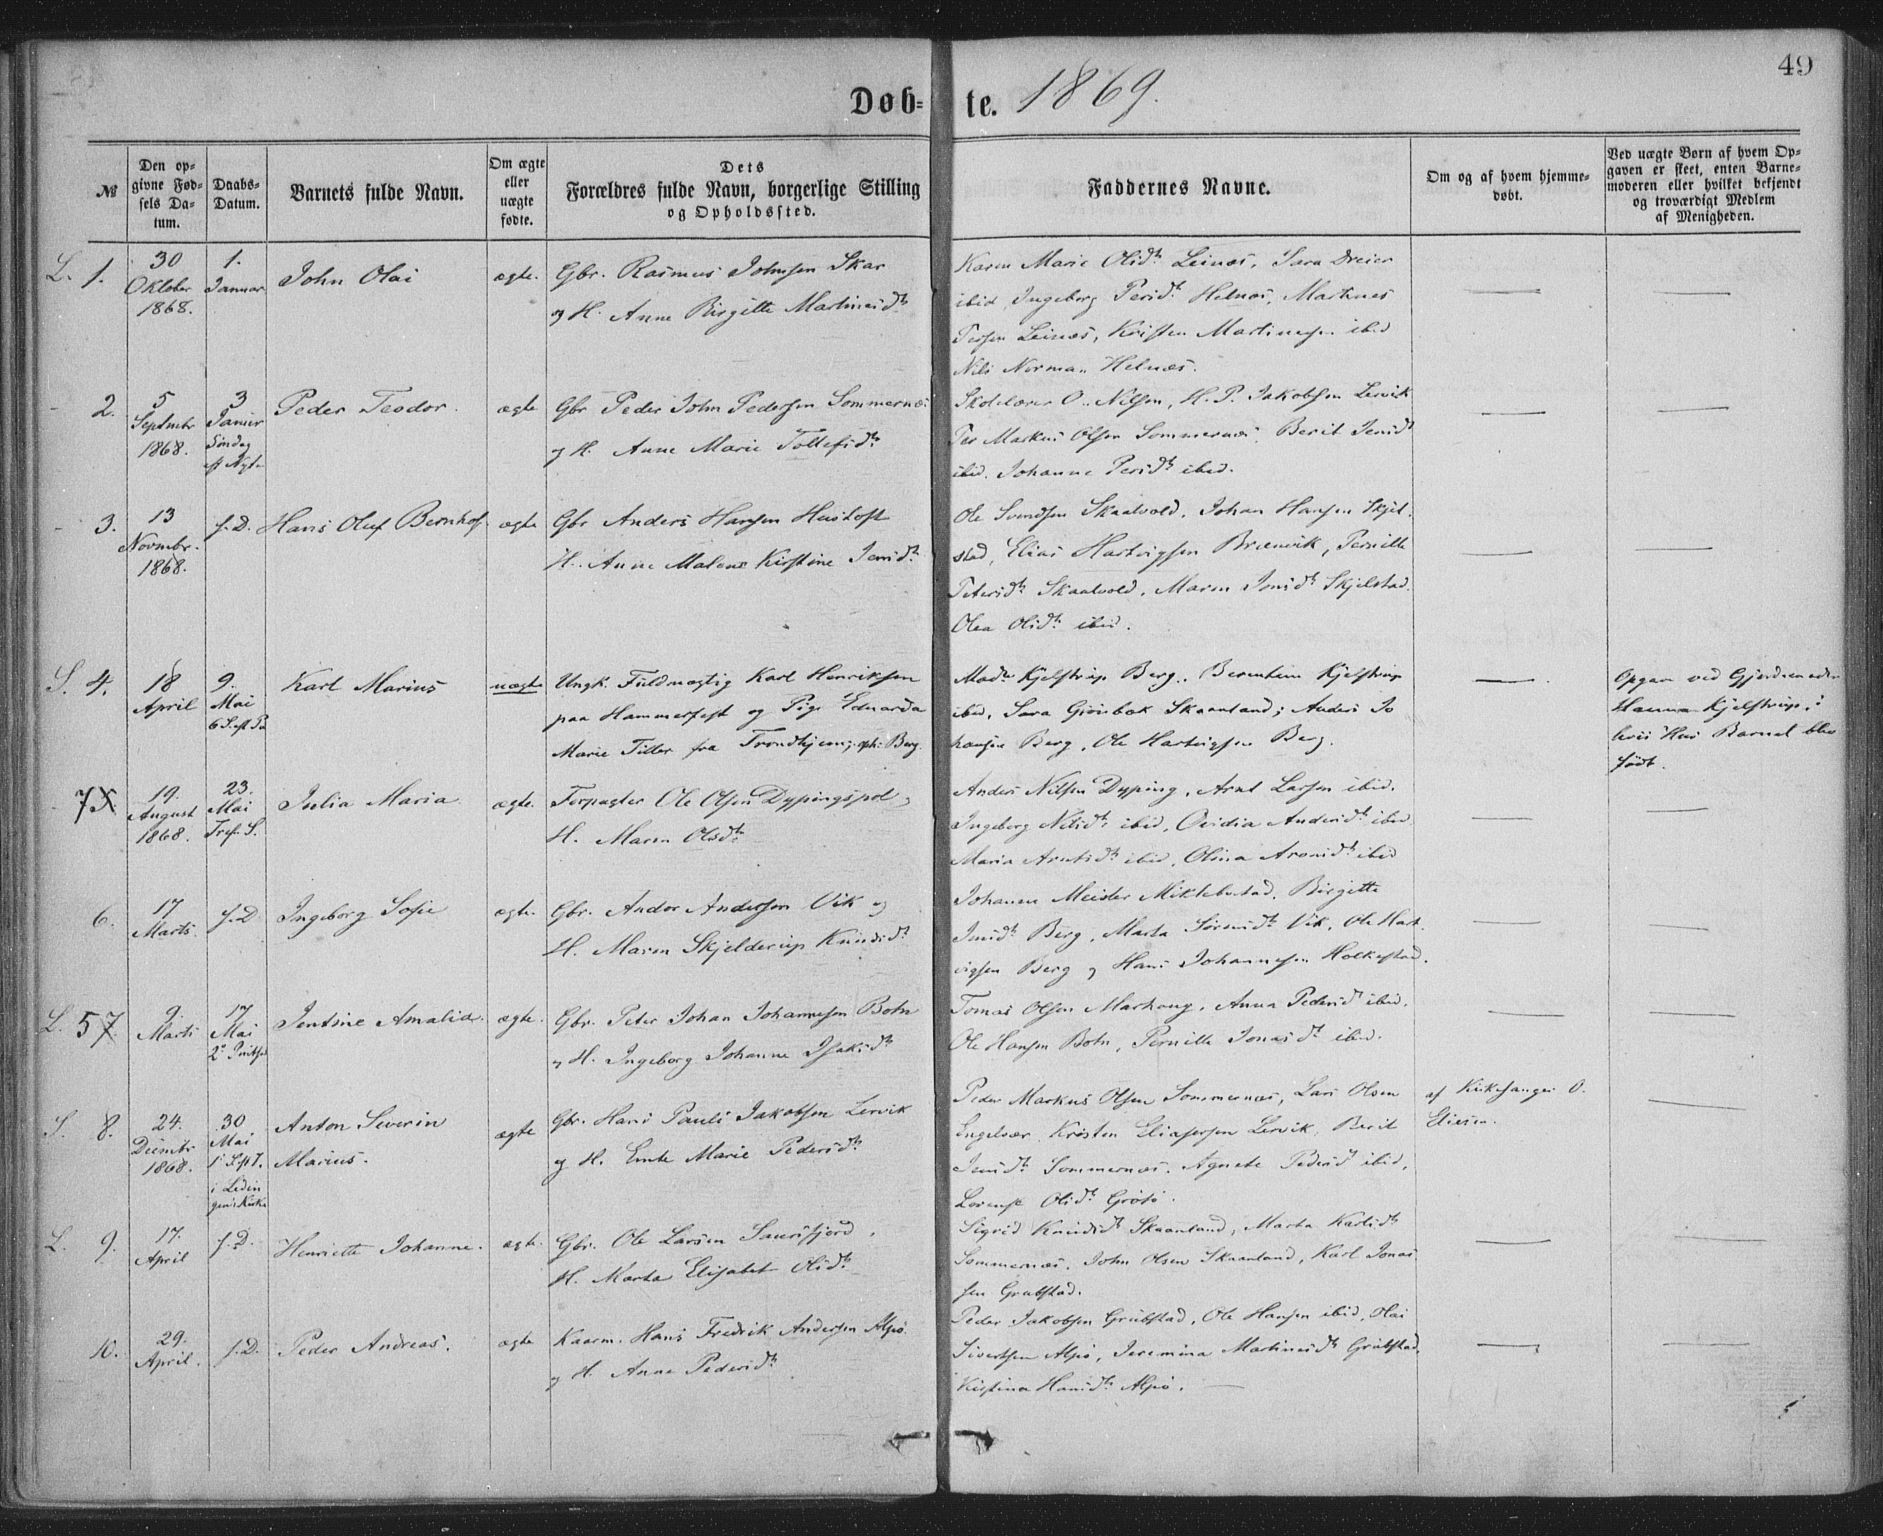 49
Døb-te. 1869.
№
Den opgivne Fødsels Datum.
Daabs-Datum.
Barnets fulde Navn.
Om ægte eller uægte fødte.
Dets Forældres fulde Navn, borgerlige Stilling og Opholdssted.
Faddernes Navne.
Om og af hvem hjemmedøbt.
Ved uægte Børn af hvem Opgaven er skeet, enten Barnemoderen eller hvilket bekjendt og troværdigt Medlem af Menigheden.
L. 1.
30 Oktober 1868.
1. Januar
John Olai
ægte.
Gbr. Rasmus Johnsen Skar
og H. Anne Birgitte Martinusdtr
Karen Marie Olsdtr Leinæs, Sara Dreier
ibid, Ingeborg Persdtr Helnæs, Martinus
Persen Leinæs, Kristen Martinussen ibid
Nils Norman Helnæs.
2.
5 September 1868.
3 Januar Søndag eft Nyt.
Peder Teodor.
ægte
Gbr Peder John Pedersen Sommernæs
og H. Anne Marie Tollefsdtr
Skolelærer O. Nilsen, H. P. Jakobsen Lervik
Per Markus Olsen Sommernæs, Berit Jensdtr
ibid. Johanne Persdtr ibid.
3.
13 Novmbr. 1868.
s. D.
Hans Oluf Bernhof
ægte
Gbr Anders Hansen
H. Anne Malene Kirstine Jensdtr
Ole Svendsen Skaalvold, Johan Hansen Skjel
stad, Elias Hartvigsen Brænvik, Pernille
Petersdtr Skaalvold, Maren Jonsdtr Skjelstad.
Olea Olsdtr ibid.
S. 4.
18 April
9. Mai 6 S. eft Pa
Karl Marius
uægte
Ungk. Fuldmægtig Karl Henriksen
paa Hammerfest og Pige Eduarda
Marie Tiller fra Trondhjem; oph: Berg.
Mad. Kjelstrup Berg, Berentine Kjelstrup
ibid, Sara Grønbæk Skaanland; Anders Jo
hansen Berg, Ole Hartvigsen Berg.
Opgav ved Gjordemoder
Hanna Kjelstrup, i
hvis Hus Barnet blev
født.
7 X
19. August 1868.
23. Mai Tref. S.
Julia Maria
ægte.
Forpagter Ole Olsen Dypingspol,
H. Maren Olsdtr
Anders Nilsen Dyping, Arnt Larsen ibid.
Ingeborg Nilsdtr ibid, Ovidia Andersdtr ibid
Maria Arntsdtr ibid, Olina Aronsdtr ibid
6.
17 Marts
s. D
Ingeborg Sofie
ægte.
Gbr. Andor Andersen Vik og
H. Maren Skjelderup Knudsdtr
Johanna Meister Miklebostad, Birgitte
Jensdtr Berg, Marta Sørensdtr Vik, Ole Hart
vigsen Berg og Hans Johannesen Holkestad.
L. 5 7.
9. Marts
17 Mai 2 Pintsed
Jentine Amalia
ægte.
Gbr. Peter Johan Johannesen Botn
og H. Ingeborg Johanne Isaksdtr
Tomas Olsen Markong, Anna Pedersdtr ibid.
Ole Hansen Botn, Pernille Jonasdtr ibid.
S. 8.
24. Decmbr 1868.
30 Mai 1 S. ef T. i Lødingens Kirke
Anton Severin
Marius.
ægte
Gbr. Hans Pauli Jakobsen Lervik
og H. Emte Marie Pedersdtr
Peder Markus Olsen Sommernæs, Lars Olsen
Engelvær, Kristen Eliasersen Lervik, Berit
Jensdtr Sommernæs, Agnete Pedersdtr ibid,
Lorense Olsdtr Grøtø.
af Kirkesanger O.
Eliesen.
L. 9.
17. April
s. D.
Henriette Johanne.
ægte.
Gbr. Ole Larsen Saursfjord,
H. Marta Elisabet Olsdtr
Sigrid Knudsdtr Skaanland, Marta Karlsdtr
Sommernæs, John Olsen Skaanland, Karl Jonas
sen Grubstad.
10.
29. April.
s. D.
Peder Andreas.
ægte
Kaarm. Hans Fredrik Andersen Alpø
og H. Anne Pedersdtr
Peder Jakobsen Grubstad, Ole Hansen ibid, Olai
Sivertsen Alpø, Jeremina Martinusdtr Grubstad,
Kristina Hansdtr Alpø.